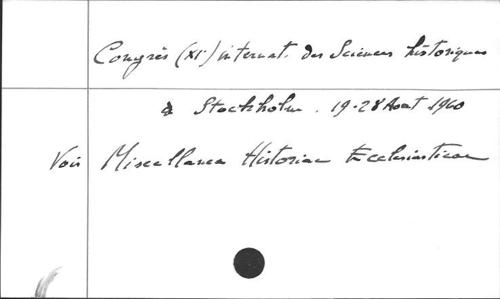 Congrès (XIe) internat. des Sciences historiques
à Stockholm. 19-28 Août 1960
Voir Miscellanea Historiae Ecclesiasticae